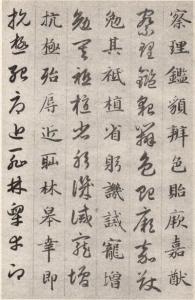 察理鑑貌辨色貽厥嘉猷
察理鑑貌辨色貽厥嘉猷
勉其祗植省躬譏誡寵增
勉其祗植省躬譏誡寵增
抗極殆辱近耻林皋幸即
抗極殆辱近耻林皋幸即